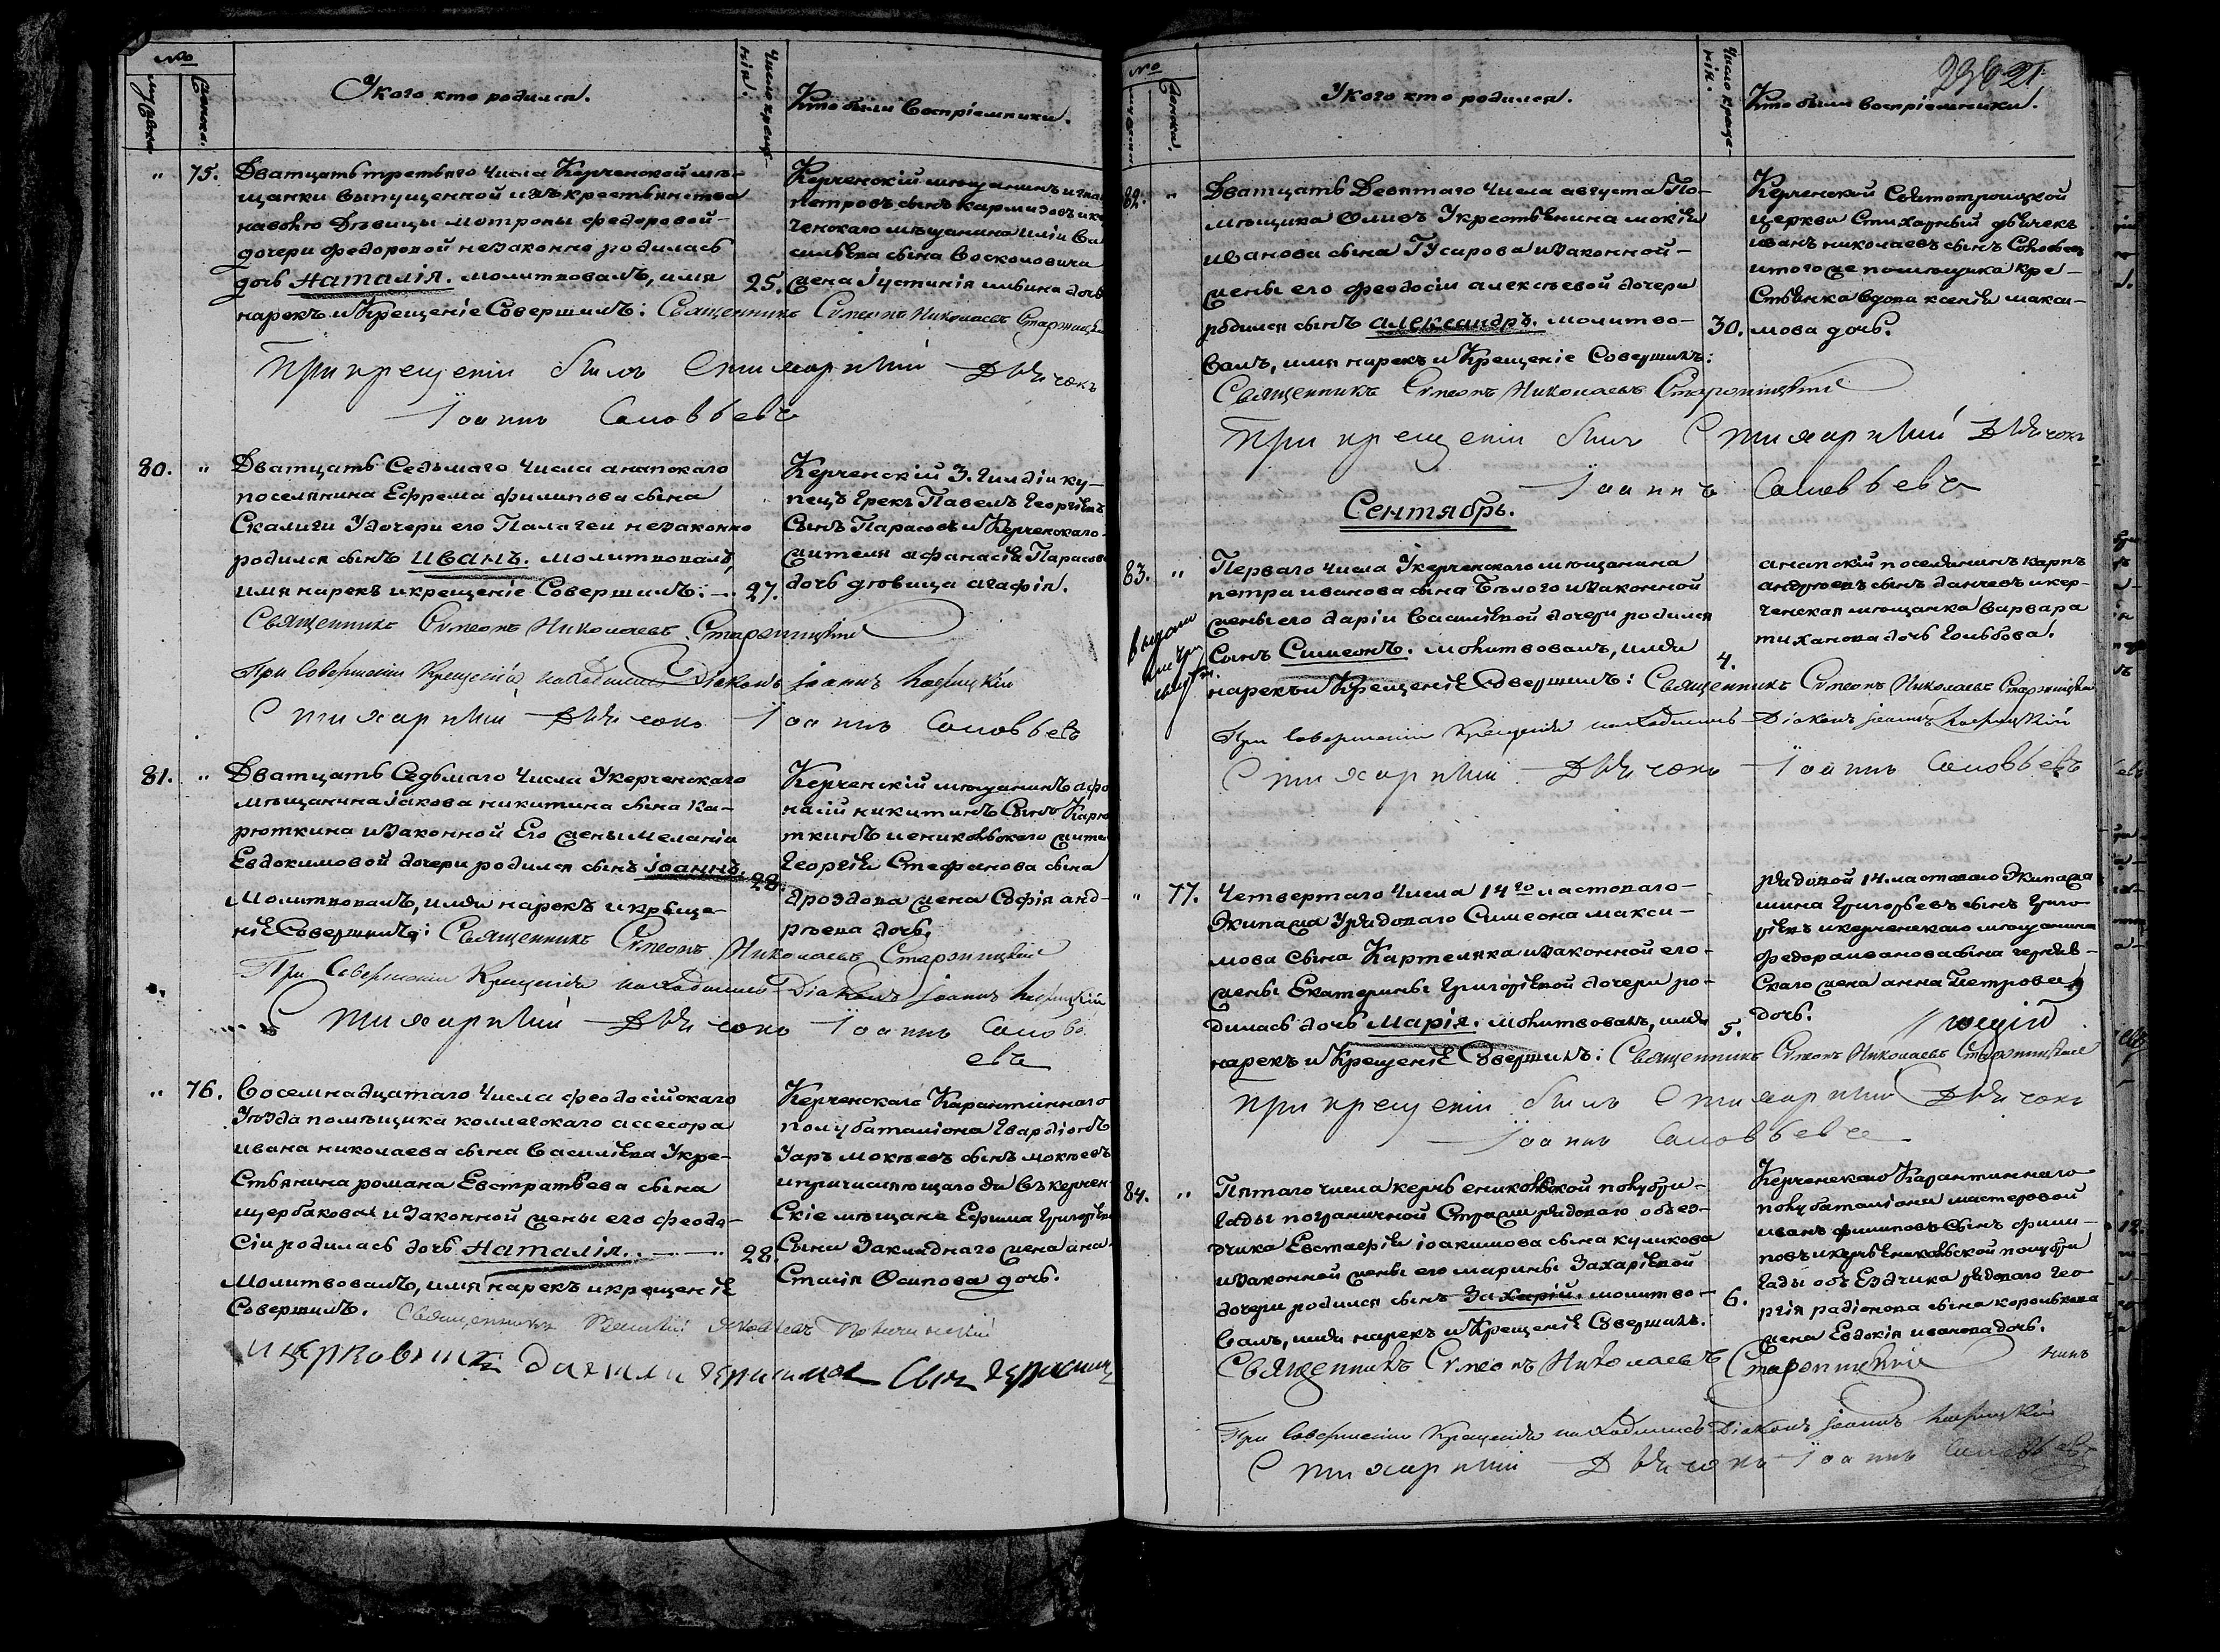 №
Мужеска.
Женска.
У кого кто родился.
Число крещенія.
Кто были Воспріемники.
" 75. Дватцать третьяго Числа Керченской мѣ-
щанки выпущенной изъ крестьянства
на волю Дѣвицы мотроны федоровой-
дочери федоровой незаконно родилась
дочь Наталія. молитвовалъ, имя 25.
нарекъ и Крещеніе Совершилъ: Священникъ Симеонъ Николаевъ
Керченскій мѣщанинъ
петровъ сынъ
ченскаго мѣщанина иліи Ва
сильева сына Восколовича
жена Іустинія ильина дочь
При крещеніи былъ Стихарный Дьячокъ
Іоаннъ Соловьевъ
80. " Дватцать Седьмаго Числа анапскаго
поселянина Ефрема филипова сына
Скалиги У дочери его Палагеи незаконно
родился сынъ иванъ. молитвовалъ,
имя нарекъ и крещеніе Совершилъ: 27.
Керченскій 3. Гилдіи ку-
пецъ Грекъ Павелъ Георгіевъ
Сынъ Парасовъ и Керченскаго
жителя афанасія Парасова
дочь дѣвица агафія.
Священникъ Симеонъ Николаевъ
При Совершеніи Крещенія находился Діаконъ Іоаннъ
Стихарный Дьячокъ Іоаннъ Соловьевъ
81. " Дватцать Седьмаго Числа У керченскаго
мѣщанина іакова никитина сына Ка-
рюткина и законной Его жены меланіи
Евдокимовой дочери родился сынъ іоаннъ. 28.
Молитвовалъ, имя нарекъ и креще-
ніе Совершилъ: Священникъ Симеонъ Николаевъ
Керченскій мѣщанинъ афо
насій никитинъ Сынъ Карю
ткинъ и еникольскаго жите
Георгія Стефанова сына
дроздова жена Софія анд-
рѣева дочь.
При Совершеніи Крещенія находился Діаконъ Іоаннъ
Стихарный Дьячокъ Іоаннъ Соловь
евъ
" 76. Восемнадцатаго Числа феодосійскаго
Уѣзда помѣщика коллежскаго ассесора
ивана николаева сына Василіева У кре-
Стьянина романа Евстратьева сына
щербакова и законной жены его феодо-
Сіи родилась дочь Наталія. 28.
Молитвовалъ, имя нарекъ и крещеніе
Совершилъ. Священникъ
Керченскаго Карантиннаго
полубаталіона Гвардіонъ
Уаръ мокѣевъ сынъ мокѣевъ
и причисляющагося въ керчен-
Скіе мѣщане Ефима Григоріева
Сына Закладнаго жена ана-
Стасія Осипова дочь.
и церковникъ
№
Женска.
У кого кто родился.
Число крещенія.
Кто были воспріемники.
82. " Дватцать Девятаго Числа августа По-
мѣщика Оливъ У крестьянина мокія
иванова сына Гусарова и законной-
жены его феодосіи алексѣевой дочери
родился сынъ александръ. молитво- 30.
валъ, имя нарекъ и Крещеніе Совершилъ:
Керченской Святотроицкой
церкви Стихарный дьячекъ
иванъ николаевъ сынъ Соловьевъ
и того же помѣщика кре-
Стьянка вдова ксенія макси-
мова дочь.
Священникъ Симеонъ Николаевъ
При крещеніи былъ Стихарный Дьячокъ
Іоаннъ Соловьевъ
Сентябрь.
83. " Перваго числа У керченскаго мѣщанина
петра иванова сына Бѣлого и законной
жены его даріи Василіевой дочери родился
Сынъ Симеонъ. молитвовалъ, имя 4.
нарекъ и Крещеніе Совершилъ: Священникъ Симеонъ Николаевъ
анапскій поселянинъ карпъ
андреевъ сынъ данчевъ и кер-
ченская мѣщанка варвара
тиханова дочь Голубова.
При Совершеніи Крещенія находились Діаконъ Іоаннъ
Стихарный Дьячокъ Іоаннъ Соловьевъ
" 77. Четвертаго Числа 14го ластоваго-
Экипажа У рядоваго Симеона макси-
мова Сына Картеляка и законной его-
жены Екатерины Григоріевой дочери ро-
дилась дочь Марія. молитвовалъ, имя 5.
нарекъ и Крещеніе Совершилъ: Священникъ Симеонъ Николаевъ
рядовой 14. ластоваго Экипажа
мина Григорьевъ сынъ Григо
ріевъ и керченскаго мѣщанина
федора иванова сына черняв-
Скаго жена анна Петрова
дочь.
При крещеніи былъ Стихарный Дьячокъ
Іоаннъ Соловьевъ
84. " Пятаго числа керчь еникольской полубри-
гады пограничной Стражи рядоваго объез-
дчика Евстафія іоакимова сына куликова
и законной жены его марины Захаріевой
дочери родился сынъ Захарій. молитво- 6.
валъ, имя нарекъ и Крещеніе Совершилъ.
Керченскаго Карантиннаго
полубаталіона мастеровой
иванъ филиповъ Сынъ фили-
повъ и керчь Еникольской полубри
гады объ Ездчика рядоваго Гео
ргія радіонова сына
жена Евдокія иванова дочь.
Священникъ Симеонъ Николаевъ
При Совершеніи Крещенія находились Діаконъ Іоаннъ
Стихарный Дьячокъ Іоаннъ Соловьевъ